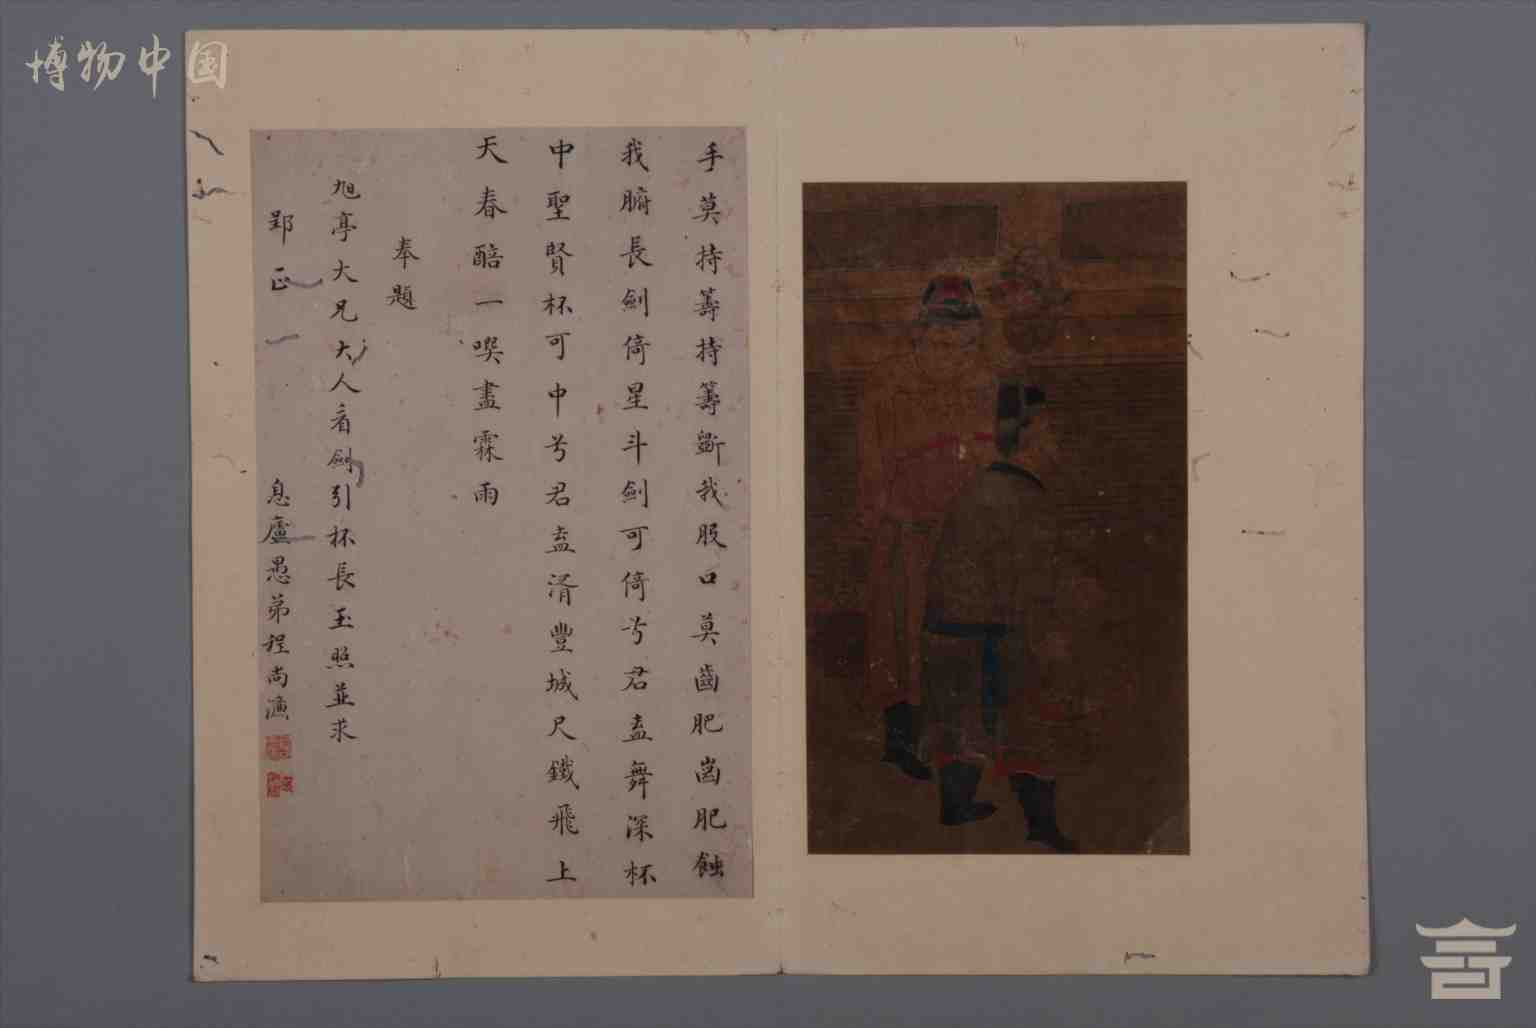 博物中国
手莫持籌持籌斷我股口莫齒肥齒肥蝕
我腑長劍倚星斗劍可倚兮君盍舞深杯
中聖賢杯可中兮君盍湑豐城尺鐵飛上
天春醅一噀盡霖雨
奉題
旭亭大兄大人看劍引杯長玉照並求
郢正
息廬愚弟程尚濂